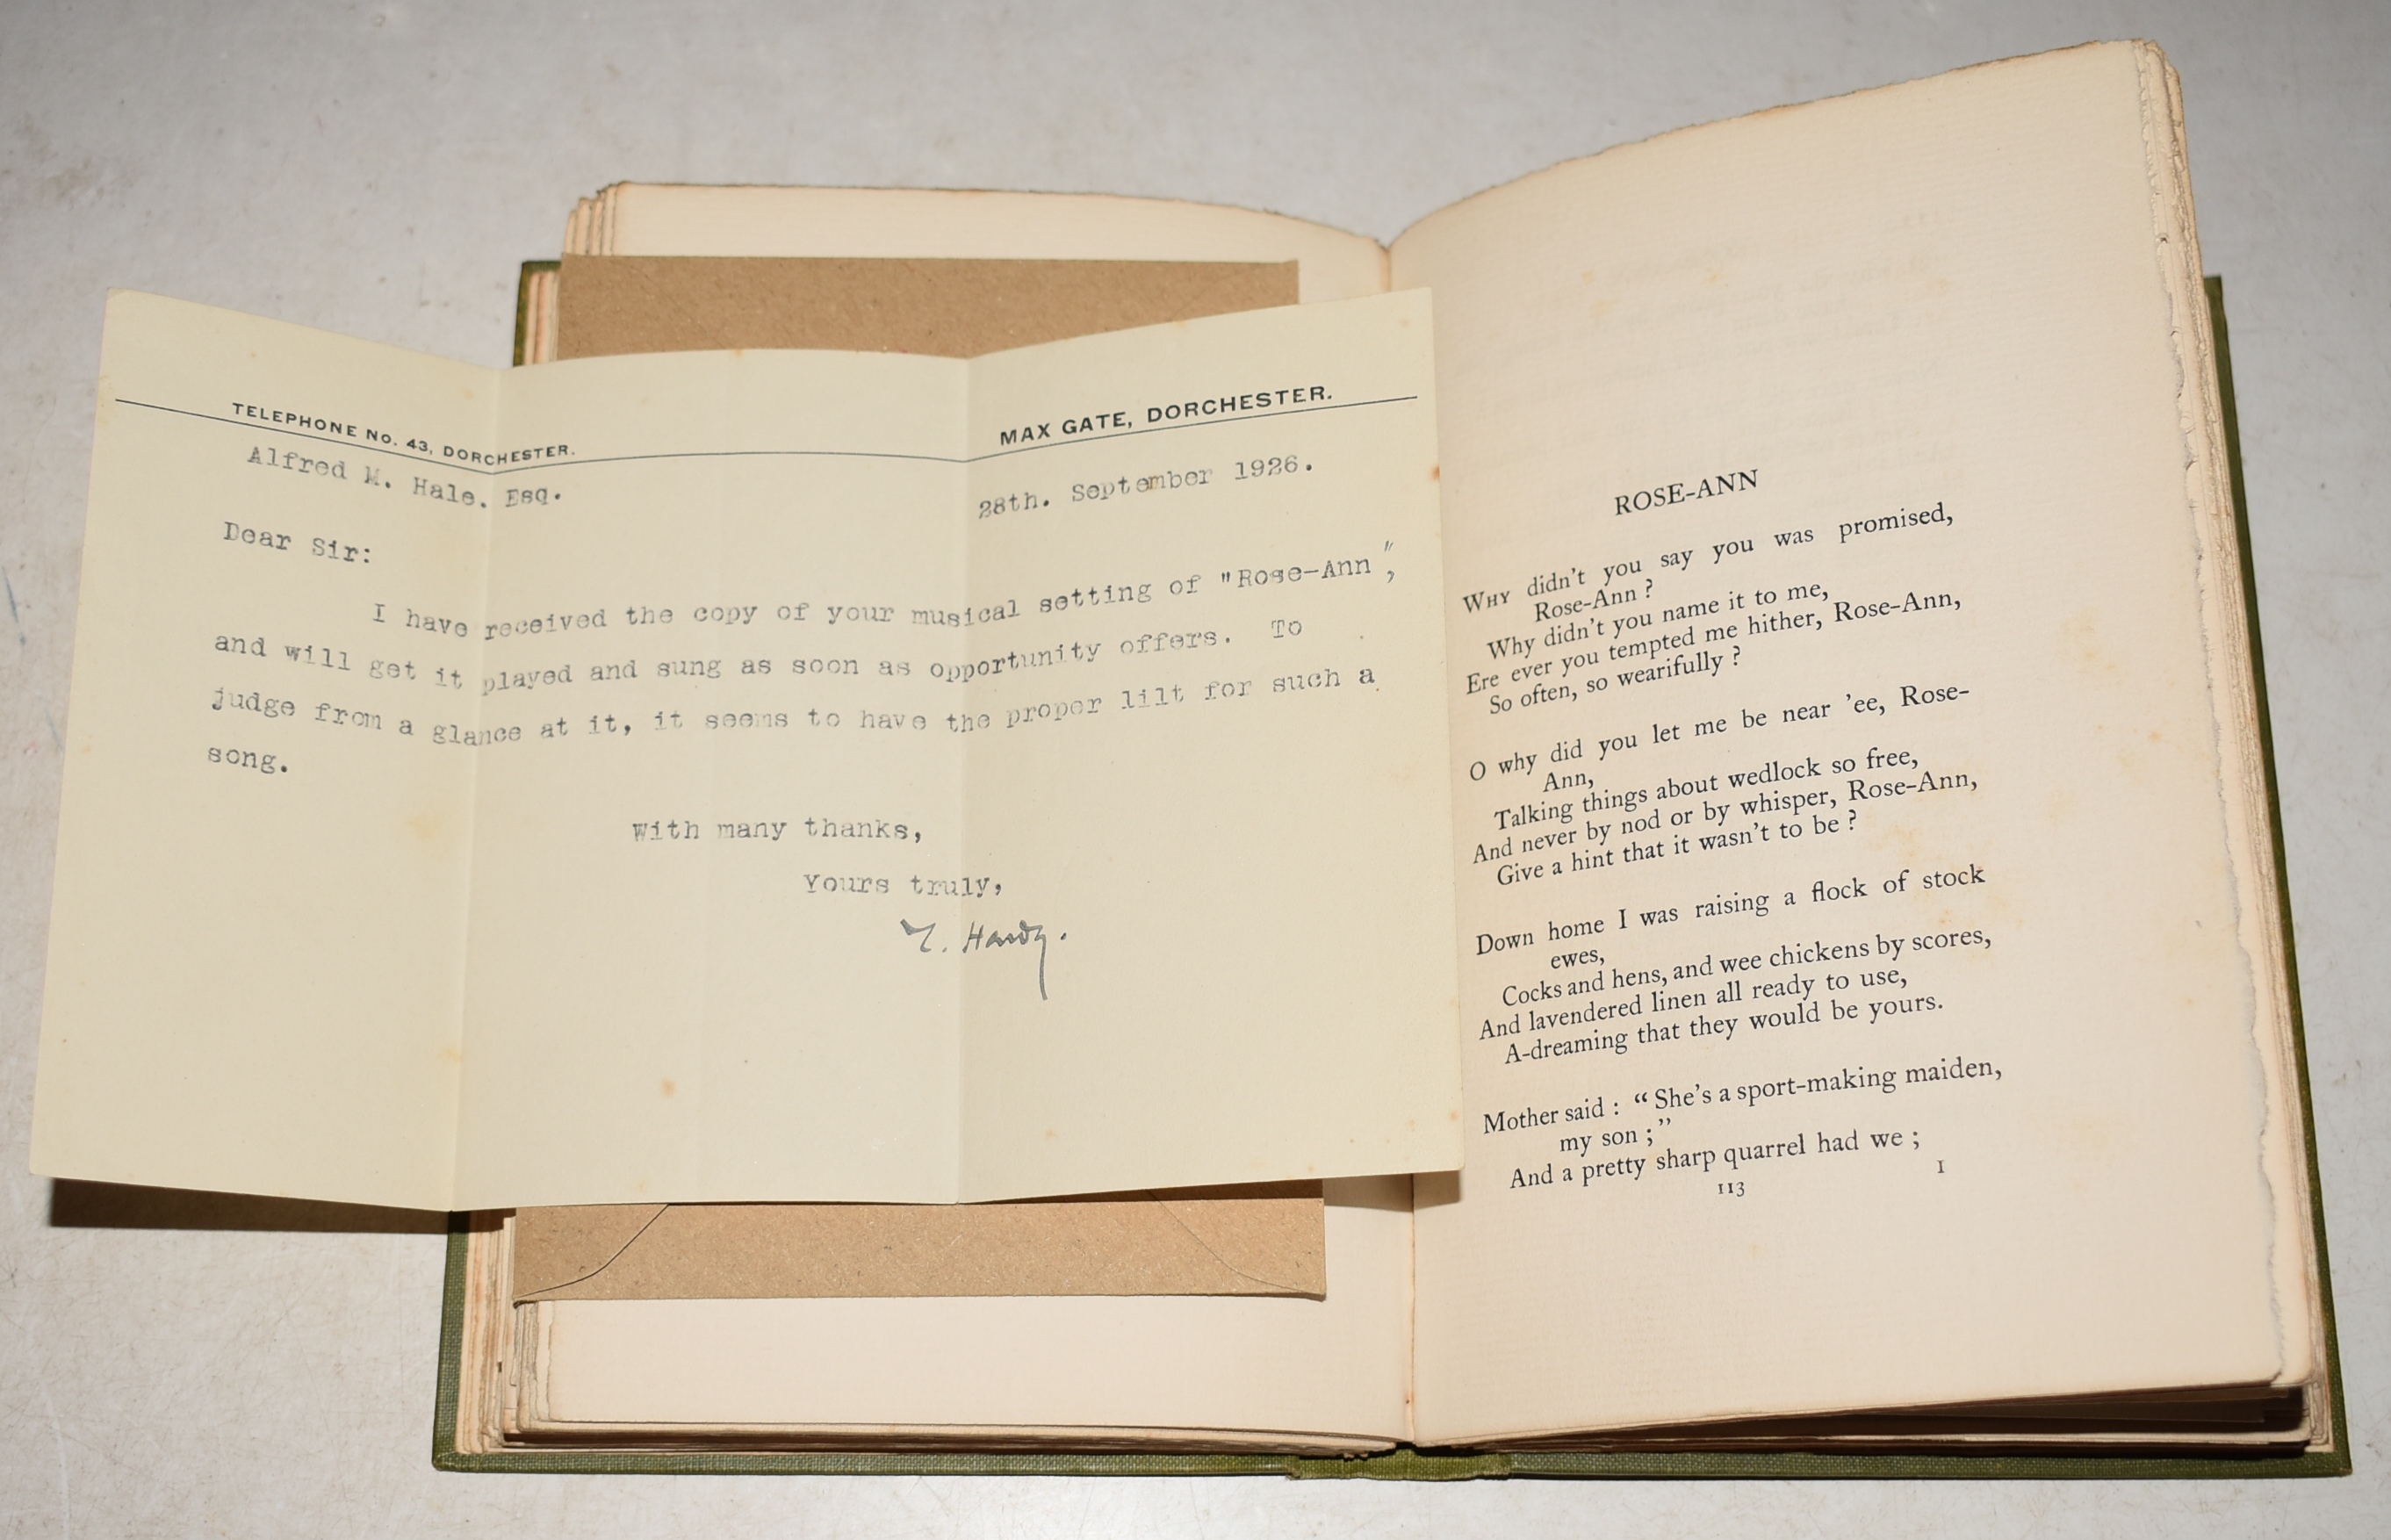 TELEPHONE No. 43, DORCHESTER.
MAX GATE, DORCHESTER.
Alfred M. Hale. Esq.
28th. September 1926.
Dear Sir:
I have received the copy of your musical setting of "Rose-Ann",
and will get it played and sung as soon as opportunity offers. To
judge from a glance at it, it seems to have the proper lilt for such a
song.
With many thanks,
Yours truly,
T. Hardy.
ROSE-ANN
WHY didn't you say you was promised,
Rose-Ann ?
Why didn't you name it to me,
Ere ever you tempted me hither, Rose-Ann,
So often, so wearifully ?
O why did you let me be near 'ee, Rose-
Ann,
Talking things about wedlock so free,
And never by nod or by whisper, Rose-Ann,
Give a hint that it wasn't to be ?
Down home I was raising a flock of stock
ewes,
Cocks and hens, and wee chickens by scores,
And lavendered linen all ready to use,
A-dreaming that they would be yours.
Mother said : “ She's a sport-making maiden,
my son ; ”
And a pretty sharp quarrel had we ;
113
I